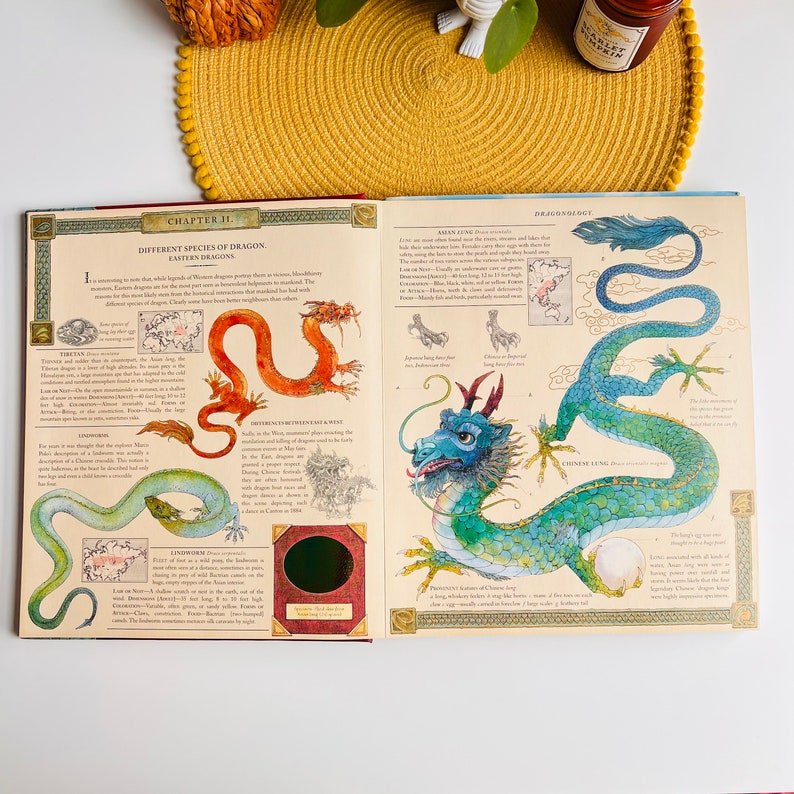 SCARLET
PUMPKIN
CHAPTER II.
DIFFERENT SPECIES OF DRAGON.
EASTERN DRAGONS.
It is interesting to note that, while legends of Western dragons portray them as vicious, bloodthirsty
monsters, Eastern dragons are for the most part seen as benevolent helpmeets to mankind. The
reasons for this most likely stem from the historical interactions that mankind has had with
different species of dragon. Clearly some have been better neighbours than others.
Some species of
lung lay their eggs
in running water.
TIBETAN Draco montana
THINNER and redder than its counterpart, the Asian lung, the
Tibetan dragon is a lover of high altitudes. Its main prey is the
Himalayan yeti, a large mountain ape that has adapted to the cold
conditions and rarefied atmosphere found in the higher mountains.
LAIR OR NEST—On the open mountainside in summer, in a shallow
den of snow in winter. DIMENSIONS [ADULT]—40 feet long; 10 to 12
feet high. COLORATION—Almost invariably red. FORMS OF
ATTACK—Biting, or else constriction. FOOD—Usually the large
mountain apes known as yetis, sometimes yaks.
DIFFERENCES BETWEEN EAST & WEST.
Sadly, in the West, mummers' plays enacting the
mutilation and killing of dragons used to be fairly
common events at May fairs.
In the East, dragons are
granted a proper respect.
During Chinese festivals
they are often honoured
with dragon boat races and
dragon dances as shown in
this scene depicting such
a dance in Canton in 1884.
LINDWORMS.
For years it was thought that the explorer Marco
Polo's description of a lindworm was actually a
description of a Chinese crocodile. This notion is
quite ludicrous, as the beast he described had only
two legs and even a child knows a crocodile
has four.
LINDWORM Draco serpentalis
FLEET of foot as a wild pony, the lindworm is
most often seen at a distance, sometimes in pairs,
chasing its prey of wild Bactrian camels on the
huge, empty steppes of the Asian interior.
LAIR OR NEST—A shallow scratch or nest in the earth, out of the
wind. DIMENSIONS [ADULT]—35 feet long; 8 to 10 feet high.
COLORATION—Variable, often green, or sandy yellow. FORMS OF
ATTACK—Claws, constriction. FOOD—Bactrian [two-humped]
camels. The lindworm sometimes menaces silk caravans by night.
DRAGONOLOGY.
ASIAN LUNG Draco orientalis
LUNG are most often found near the rivers, streams and lakes that
hide their underwater lairs. Females carry their eggs with them for
safety, using the lairs to store the pearls and opals they hoard away.
The number of toes varies across the various subspecies.
LAIR OR NEST—Usually an underwater cave or grotto.
DIMENSIONS [ADULT]—40 feet long, 12 to 15 feet high.
COLORATION—Blue, black, white, red or yellow. FORMS
OF ATTACK—Horns, teeth & claws used defensively.
FOOD—Mainly fish and birds, particularly roasted swan.
Japanese lung have four
toes, Indonesian three.
Chinese or Imperial
lung have five toes.
The lithe movement of
this species has given
rise to the erroneous
belief that it can fly.
CHINESE LUNG Draco orientalis magnus
The lung's egg was once
thought to be a huge pearl.
LUNG associated with all kinds of
water, Asian lung were seen as
having power over rainfall and
storms. It seems likely that the four
legendary Chinese dragon kings
were highly impressive specimens.
PROMINENT features of Chinese lung: